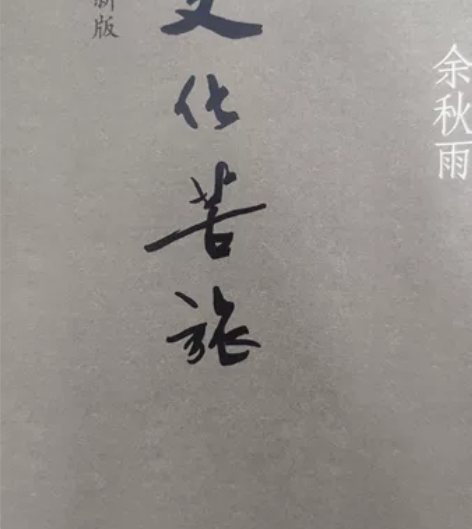 余秋雨
文化苦旅
新版